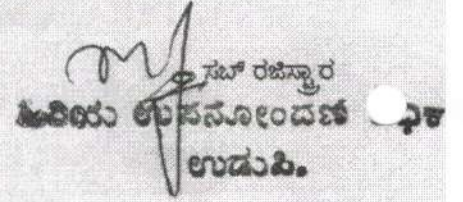 ಸಬ್ ರಜಿಸ್ಟ್ರಾರ
ಹಿರಿಯ ಉಪನೋಂದಣಿ
ಉಡುಪಿ.